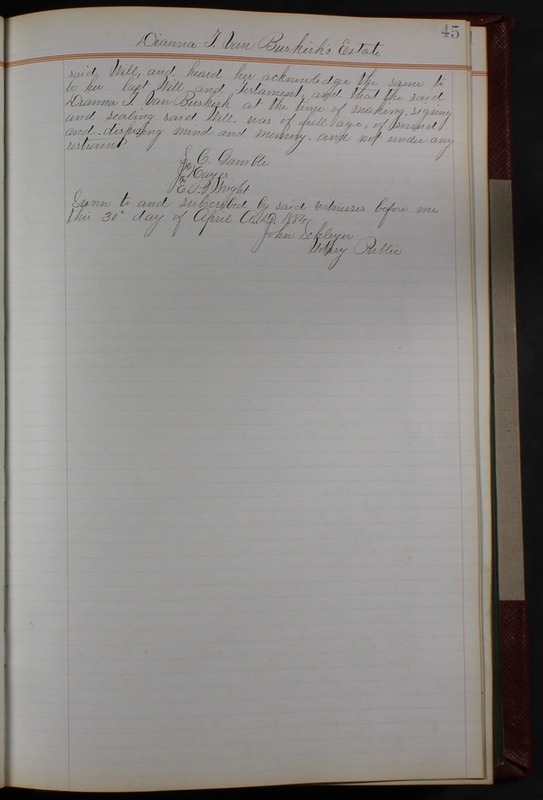 45
Dianna T. Van Buskirk's Estate
said Will, and heard her acknowledge the same to
to her last Will and testament, and that the said
Dianna T. Van Buskirk at the time of making, signing
and sealing said Will, was of full age, of sound
and disposing mind and memory and not under any
restraint
J. C. Gamble
E. A. B. Wright
Sworn to and subscribed by said witnesses before me
this 30" day of April A.D. 1884
John Schleyer
Notary Public